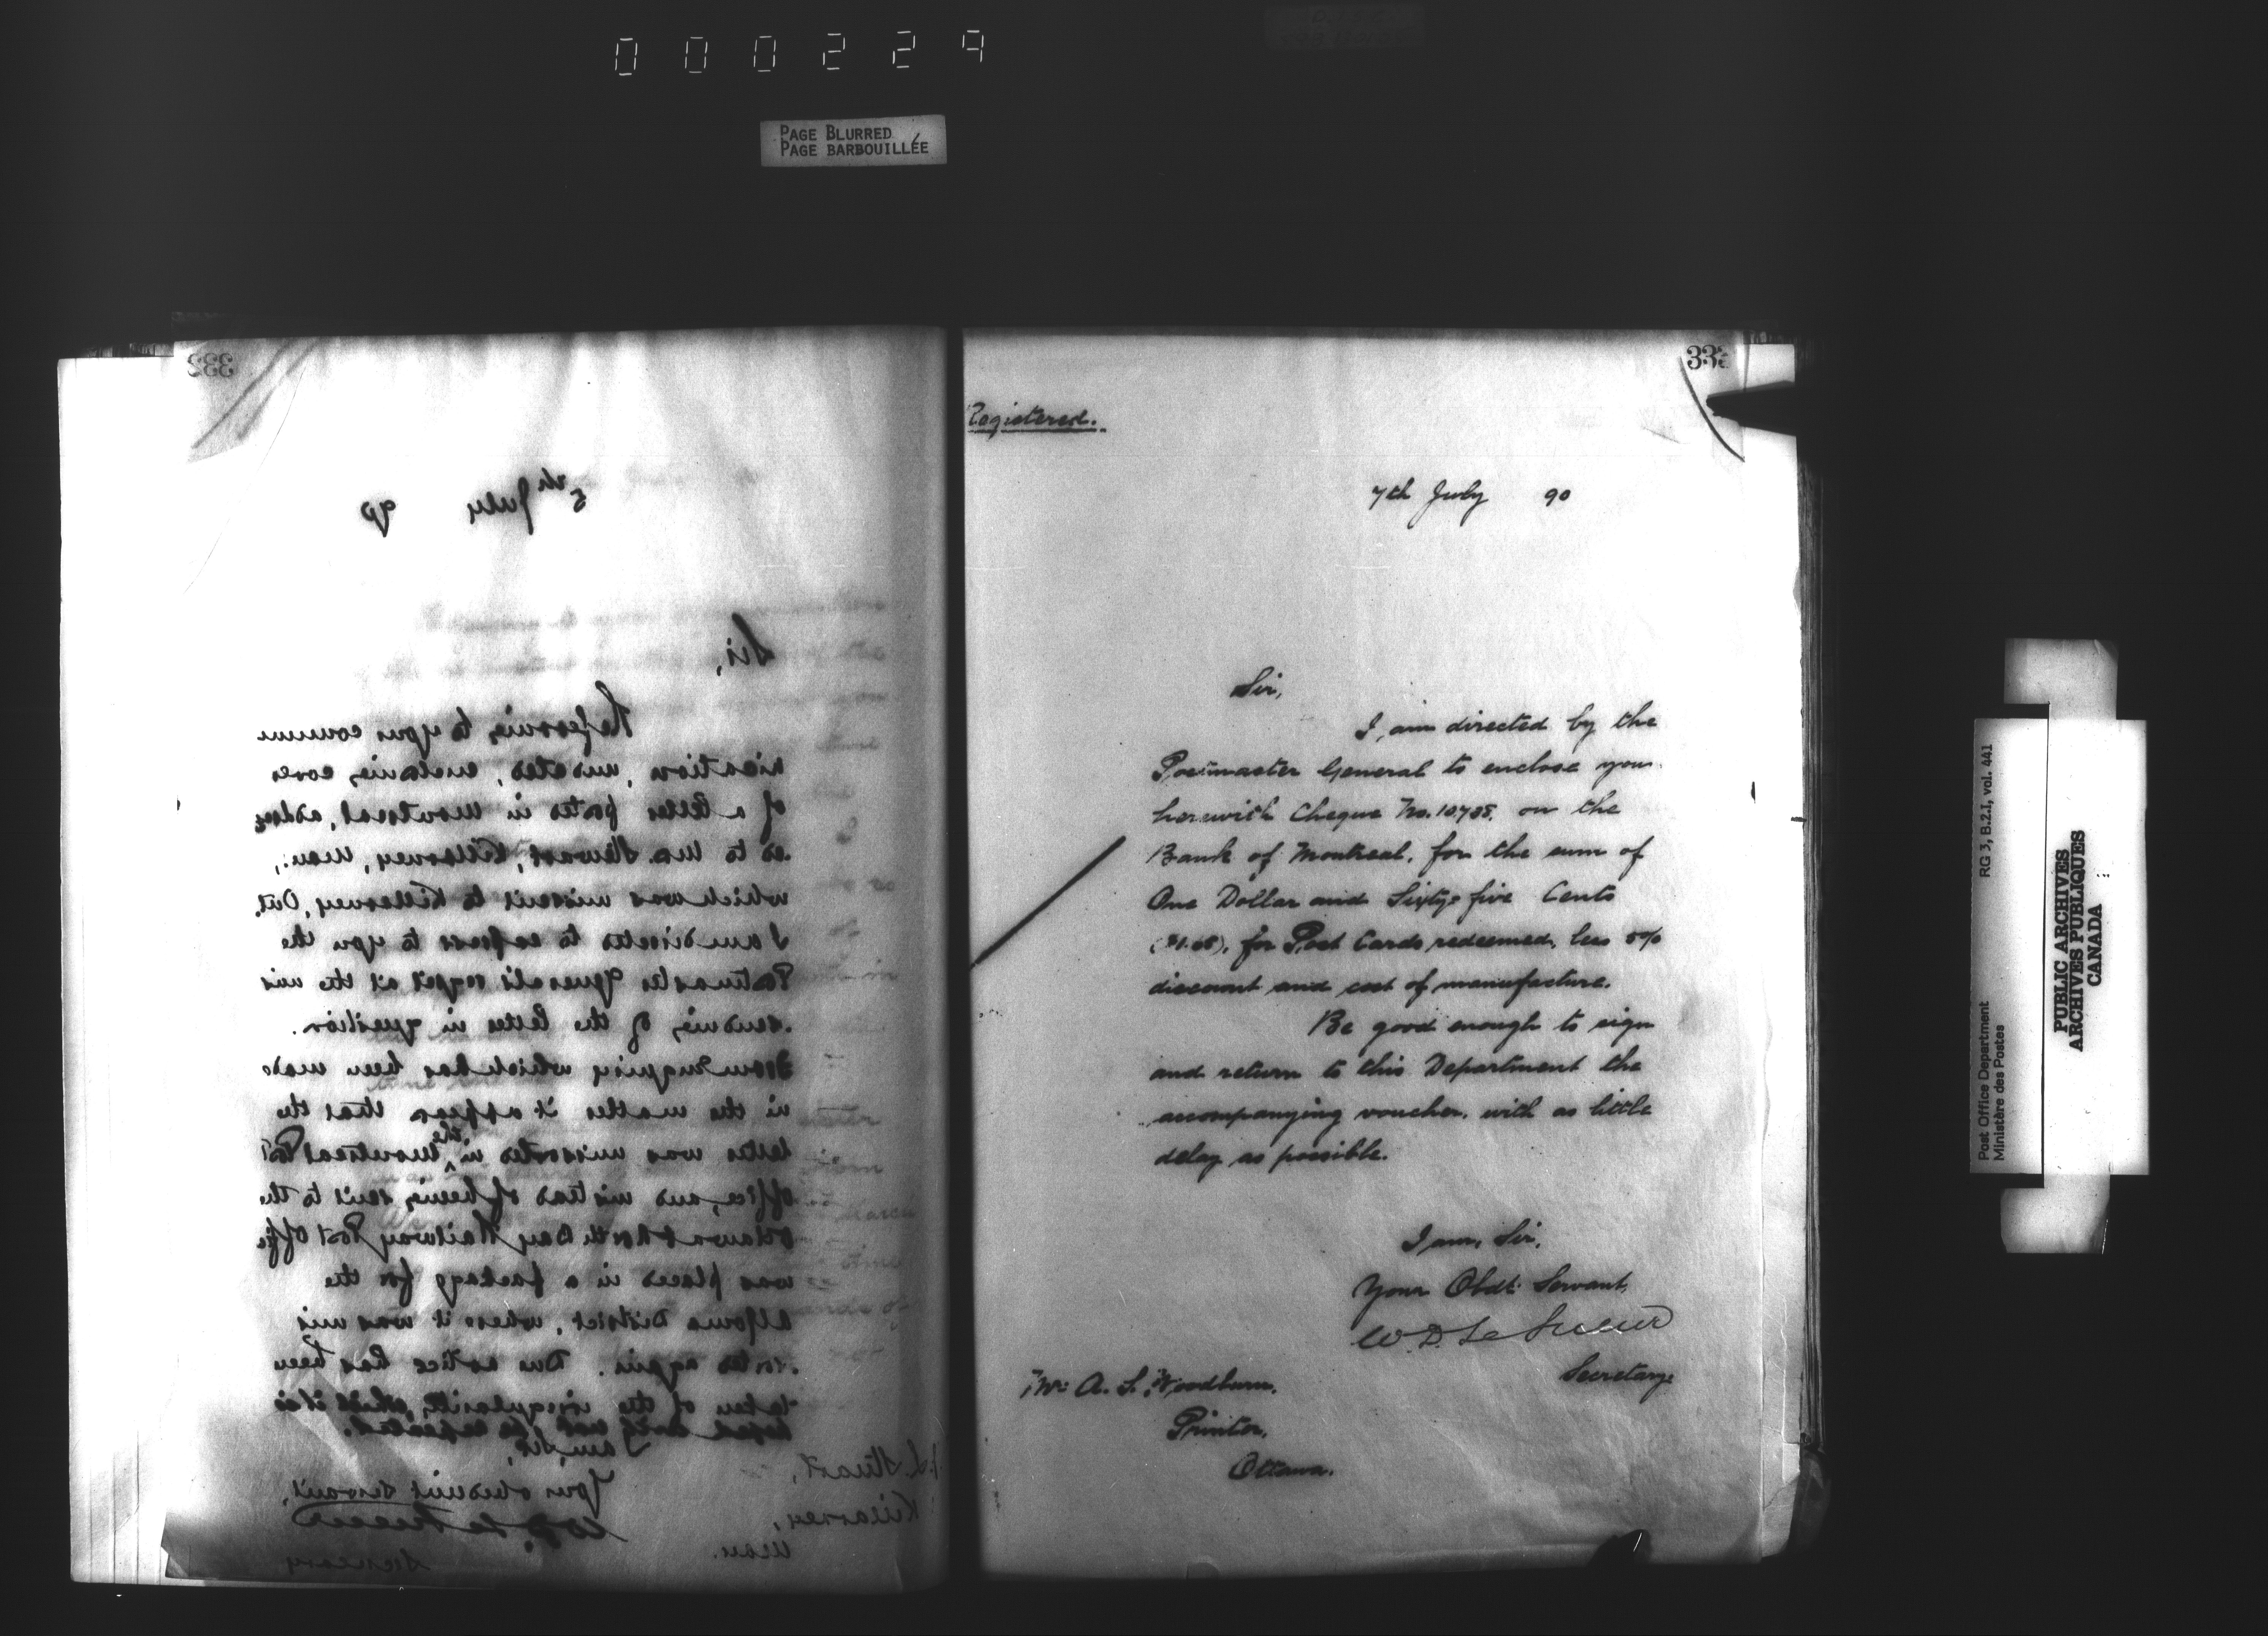 000229
PAGE BLURRED
PAGE BARBOUILLÉE
332
5th July 90
Sir,
Referring to your commu
nication, undated, enclosing cover
of a letter posted in Montreal, address
ed to Mrs. Stewart, Killarney, Man:,
which was missent to Killarney, Ont,
I am directed to express to you the
Postmaster General's regret at the mis
sending of the letter in question.
From enquiry which has been made
in the matter it appears that the
letter was missorted in the Montreal Post
Office, and instead of being sent to the
Ottawa & North Bay Railway Post Office
was placed in a package for the
Algoma District, where it was mis
sorted again. Due notice has been
taken of the irregularity, which it is
hoped will not be repeated.
I am, Sir,
Your obedient servant,
W. D. Le Sueur
Secretary
Stuart,
Killarney,
Man.
333
Registered.
7th July 90
Sir,
I am directed by the
Postmaster General to enclose you
herewith Cheque No. on the
Bank of Montreal, for the sum of
One Dollar and Sixty-five Cents
($1.65), for Post Cards redeemed, less
discount and cost of manufacture.
Be good enough to sign
and return to this Department the
accompanying voucher, with as little
delay as possible.
I am, Sir,
Your Obdt. Servant,
W. D. Le Sueur
Secretary
Mr. A. S. Woodburn,
Printer,
Ottawa.
Post Office Department
Ministère des Postes
RG 3, B.2.I, vol. 441
PUBLIC ARCHIVES
ARCHIVES PUBLIQUES
CANADA